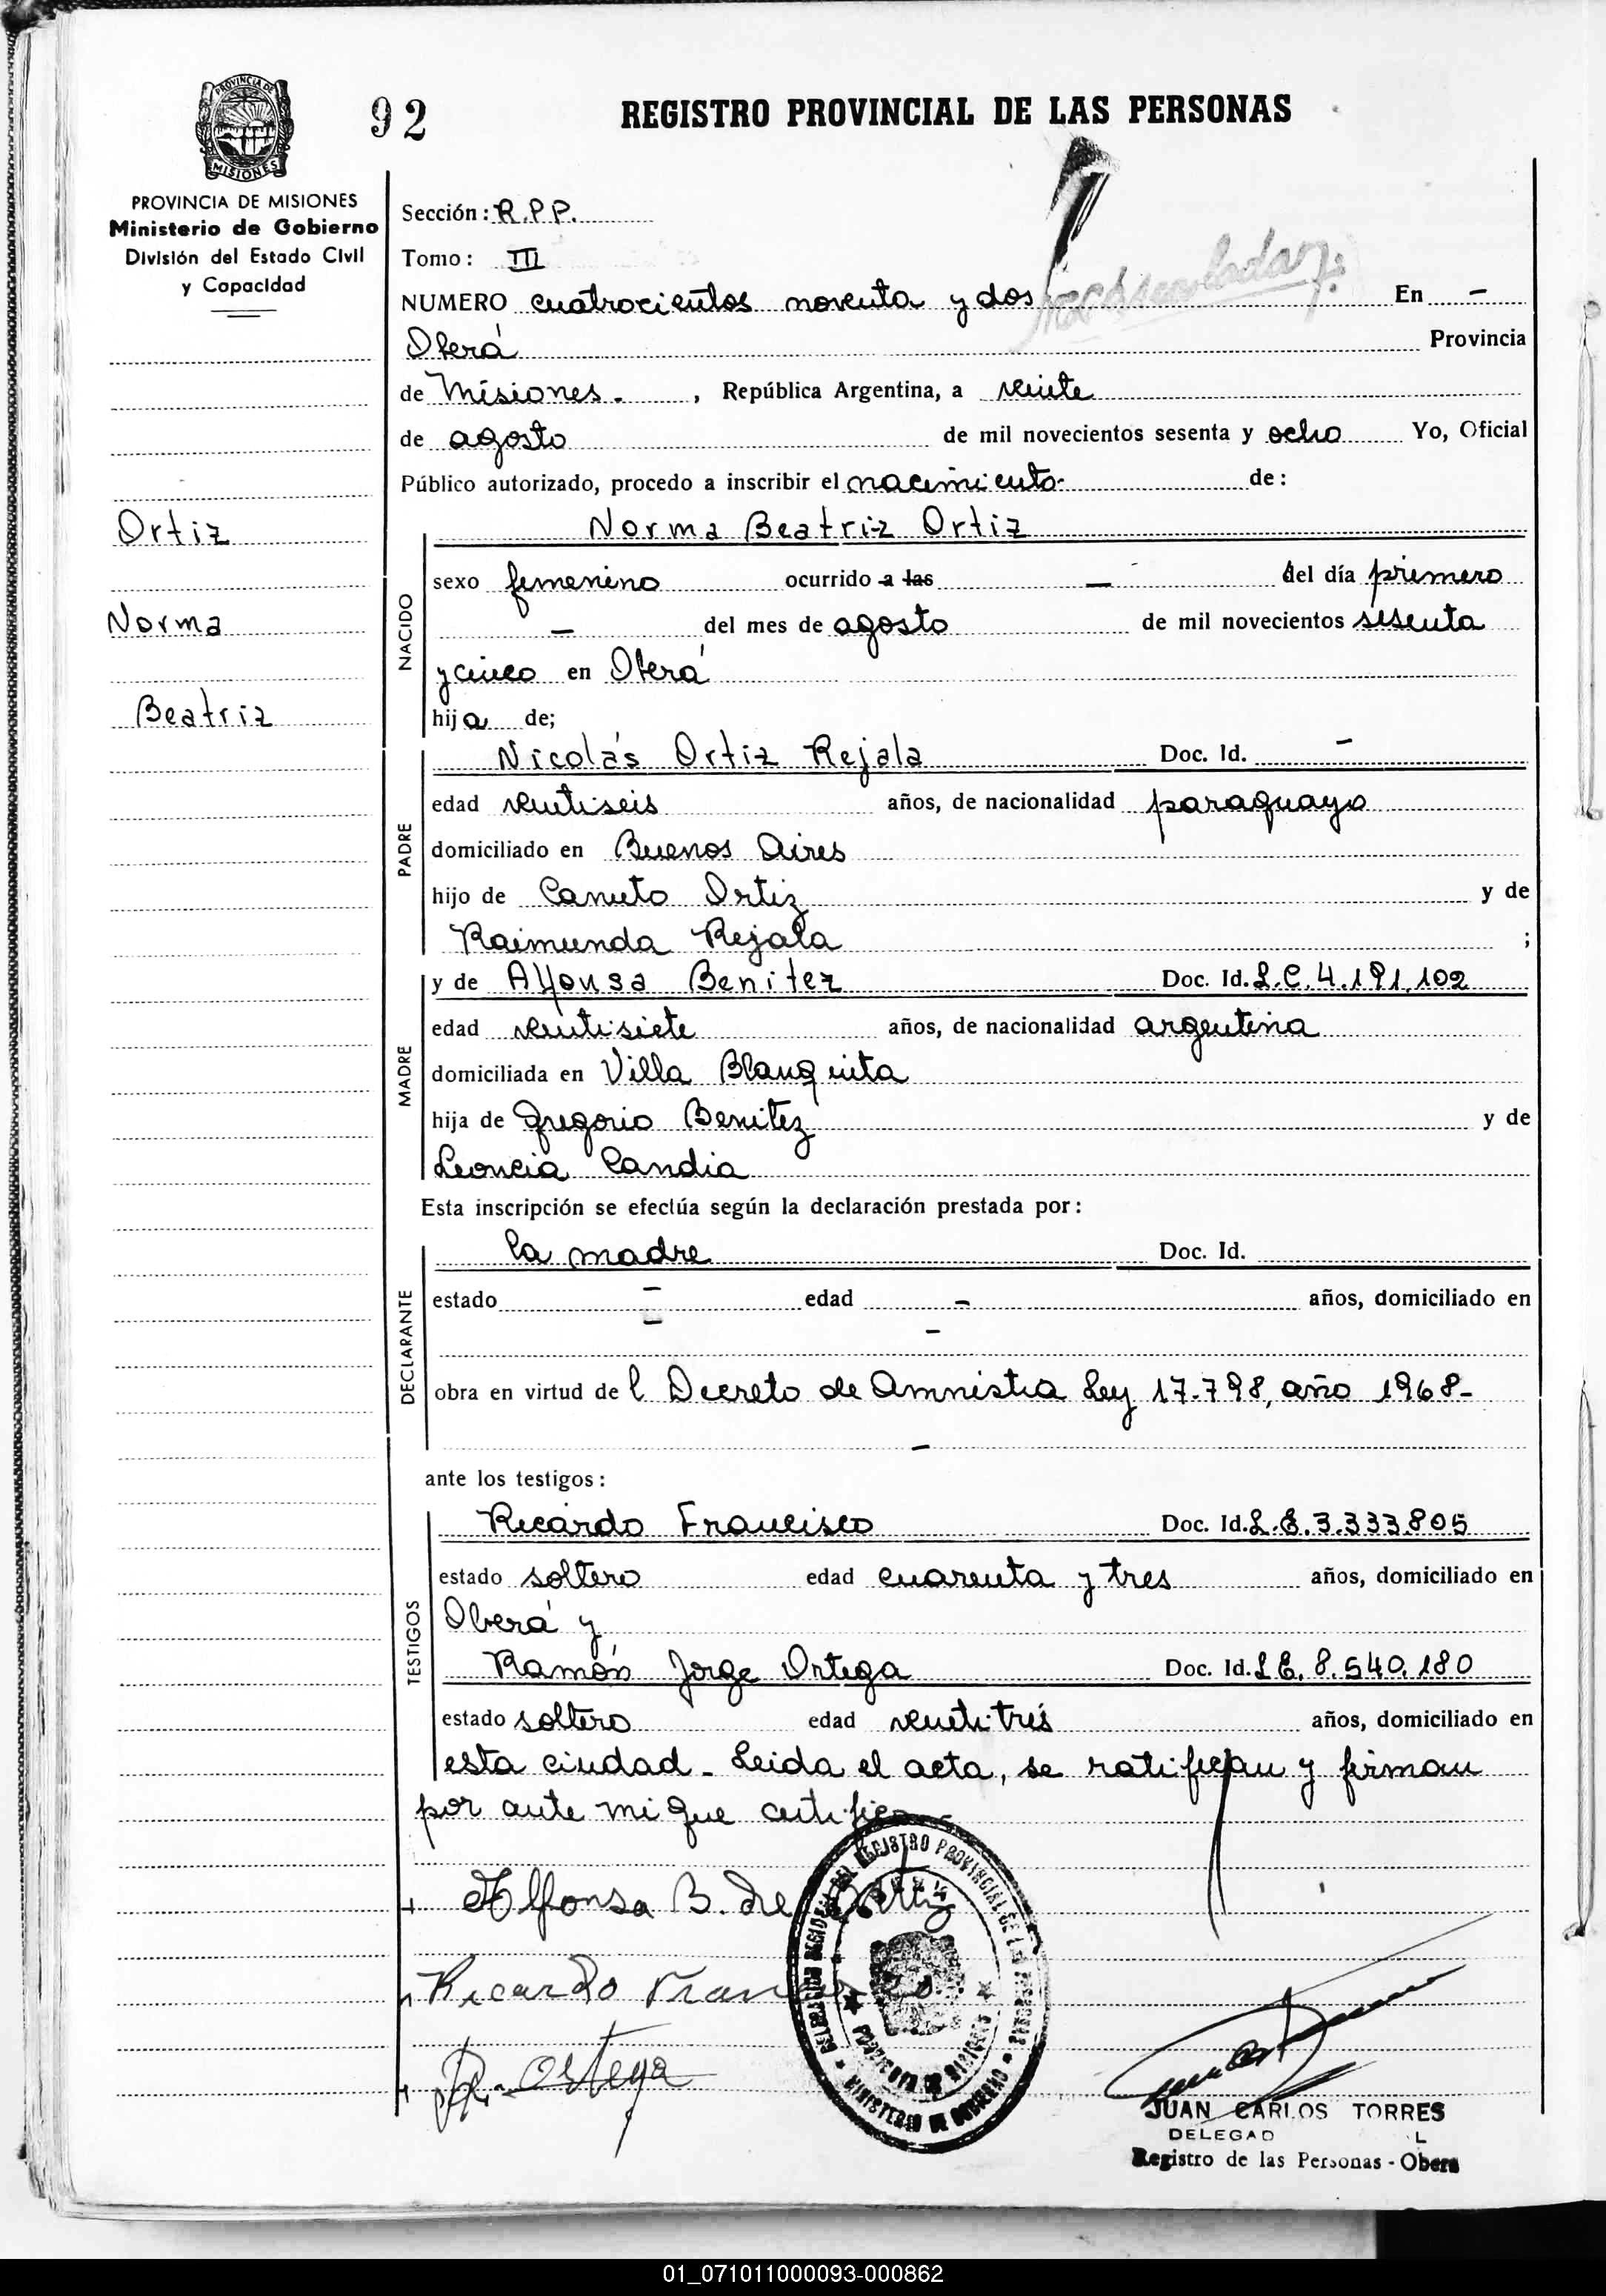 92
REGISTRO PROVINCIAL DE LAS PERSONAS
PROVINCIA DE MISIONES
Ministerio de Gobierno
División del Estado Civil
y Capacidad
Ortiz
Norma
Beatriz
Sección: R.P.P.
Tomo: III
NUMERO cuatrocientos noventa y dos En -
Oberá Provincia
de Misiones. , República Argentina, a veinte
de agosto de mil novecientos sesenta y ocho Yo, Oficial
Público autorizado, procedo a inscribir el nacimiento de:
NACIDO
Norma Beatriz Ortiz
sexo femenino ocurrido a las - del día primero
- del mes de agosto de mil novecientos sesenta
y cinco en Oberá
hija de;
PADRE
Nicolás Ortiz Rejala Doc. Id. -
edad veintiseis años, de nacionalidad paraguayo
domiciliado en Buenos Aires
hijo de Canuto Ortiz y de
Raimunda Rejala ;
MADRE
y de Alfonsa Benitez Doc. Id. L.C. 4.191.102
edad veintisiete años, de nacionalidad argentina
domiciliada en Villa Blanquita
hija de Gregorio Benitez y de
Leoncia Candia
Esta inscripción se efectúa según la declaración prestada por:
DECLARANTE
la madre Doc. Id.
estado - edad - años, domiciliado en
-
obra en virtud de l Decreto de Amnistia Ley 17.798, año 1968-
-
ante los testigos:
TESTIGOS
Ricardo Francisco Doc. Id. L.E. 3.333.805
estado soltero edad cuarenta y tres años, domiciliado en
Oberá y
Ramón Jorge Ortega Doc. Id. L.E. 8.540.180
estado soltero edad veintitrés años, domiciliado en
esta ciudad - Leida el acta, se ratifican y firman
por ante mi que certifico
Alfonsa B. de Ortiz
Ricardo Francisco
R. Ortega
REGISTRO PROVINCIAL DE LAS PERSONAS
MINISTERIO DE GOBIERNO
PROVINCIA DE MISIONES
JUAN CARLOS TORRES
Registro de las Personas - Obera
01_071011000093-000862